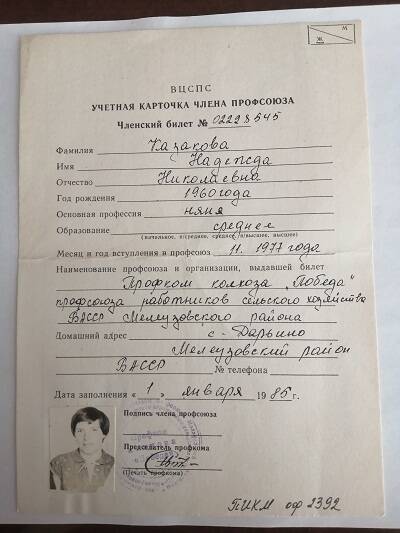 М
Ж
ВЦСПС
УЧЕТНАЯ КАРТОЧКА ЧЛЕНА ПРОФСОЮЗА
Членский билет № 02228545
Фамилия Казакова
Имя Надежда
Отчество Николаевна
Год рождения 1960 года
Основная профессия няня
Образование среднее
(начальное, н/среднее, среднее, н/высшее, высшее)
Месяц и год вступления в профсоюз 11. 1977 года
Наименование профсоюза и организации, выдавшей билет
Профком колхоза „Победа"
профсоюза работников сельского хозяйства
БАССР Мелеузовского района
Домашний адрес с. Дарьино
Мелеузовский район
БАССР № телефона
Дата заполнения « 1 » января 1985 г.
Подпись члена профсоюза
Председатель профкома
(Печать профкома)
ПИКМ оф 2392